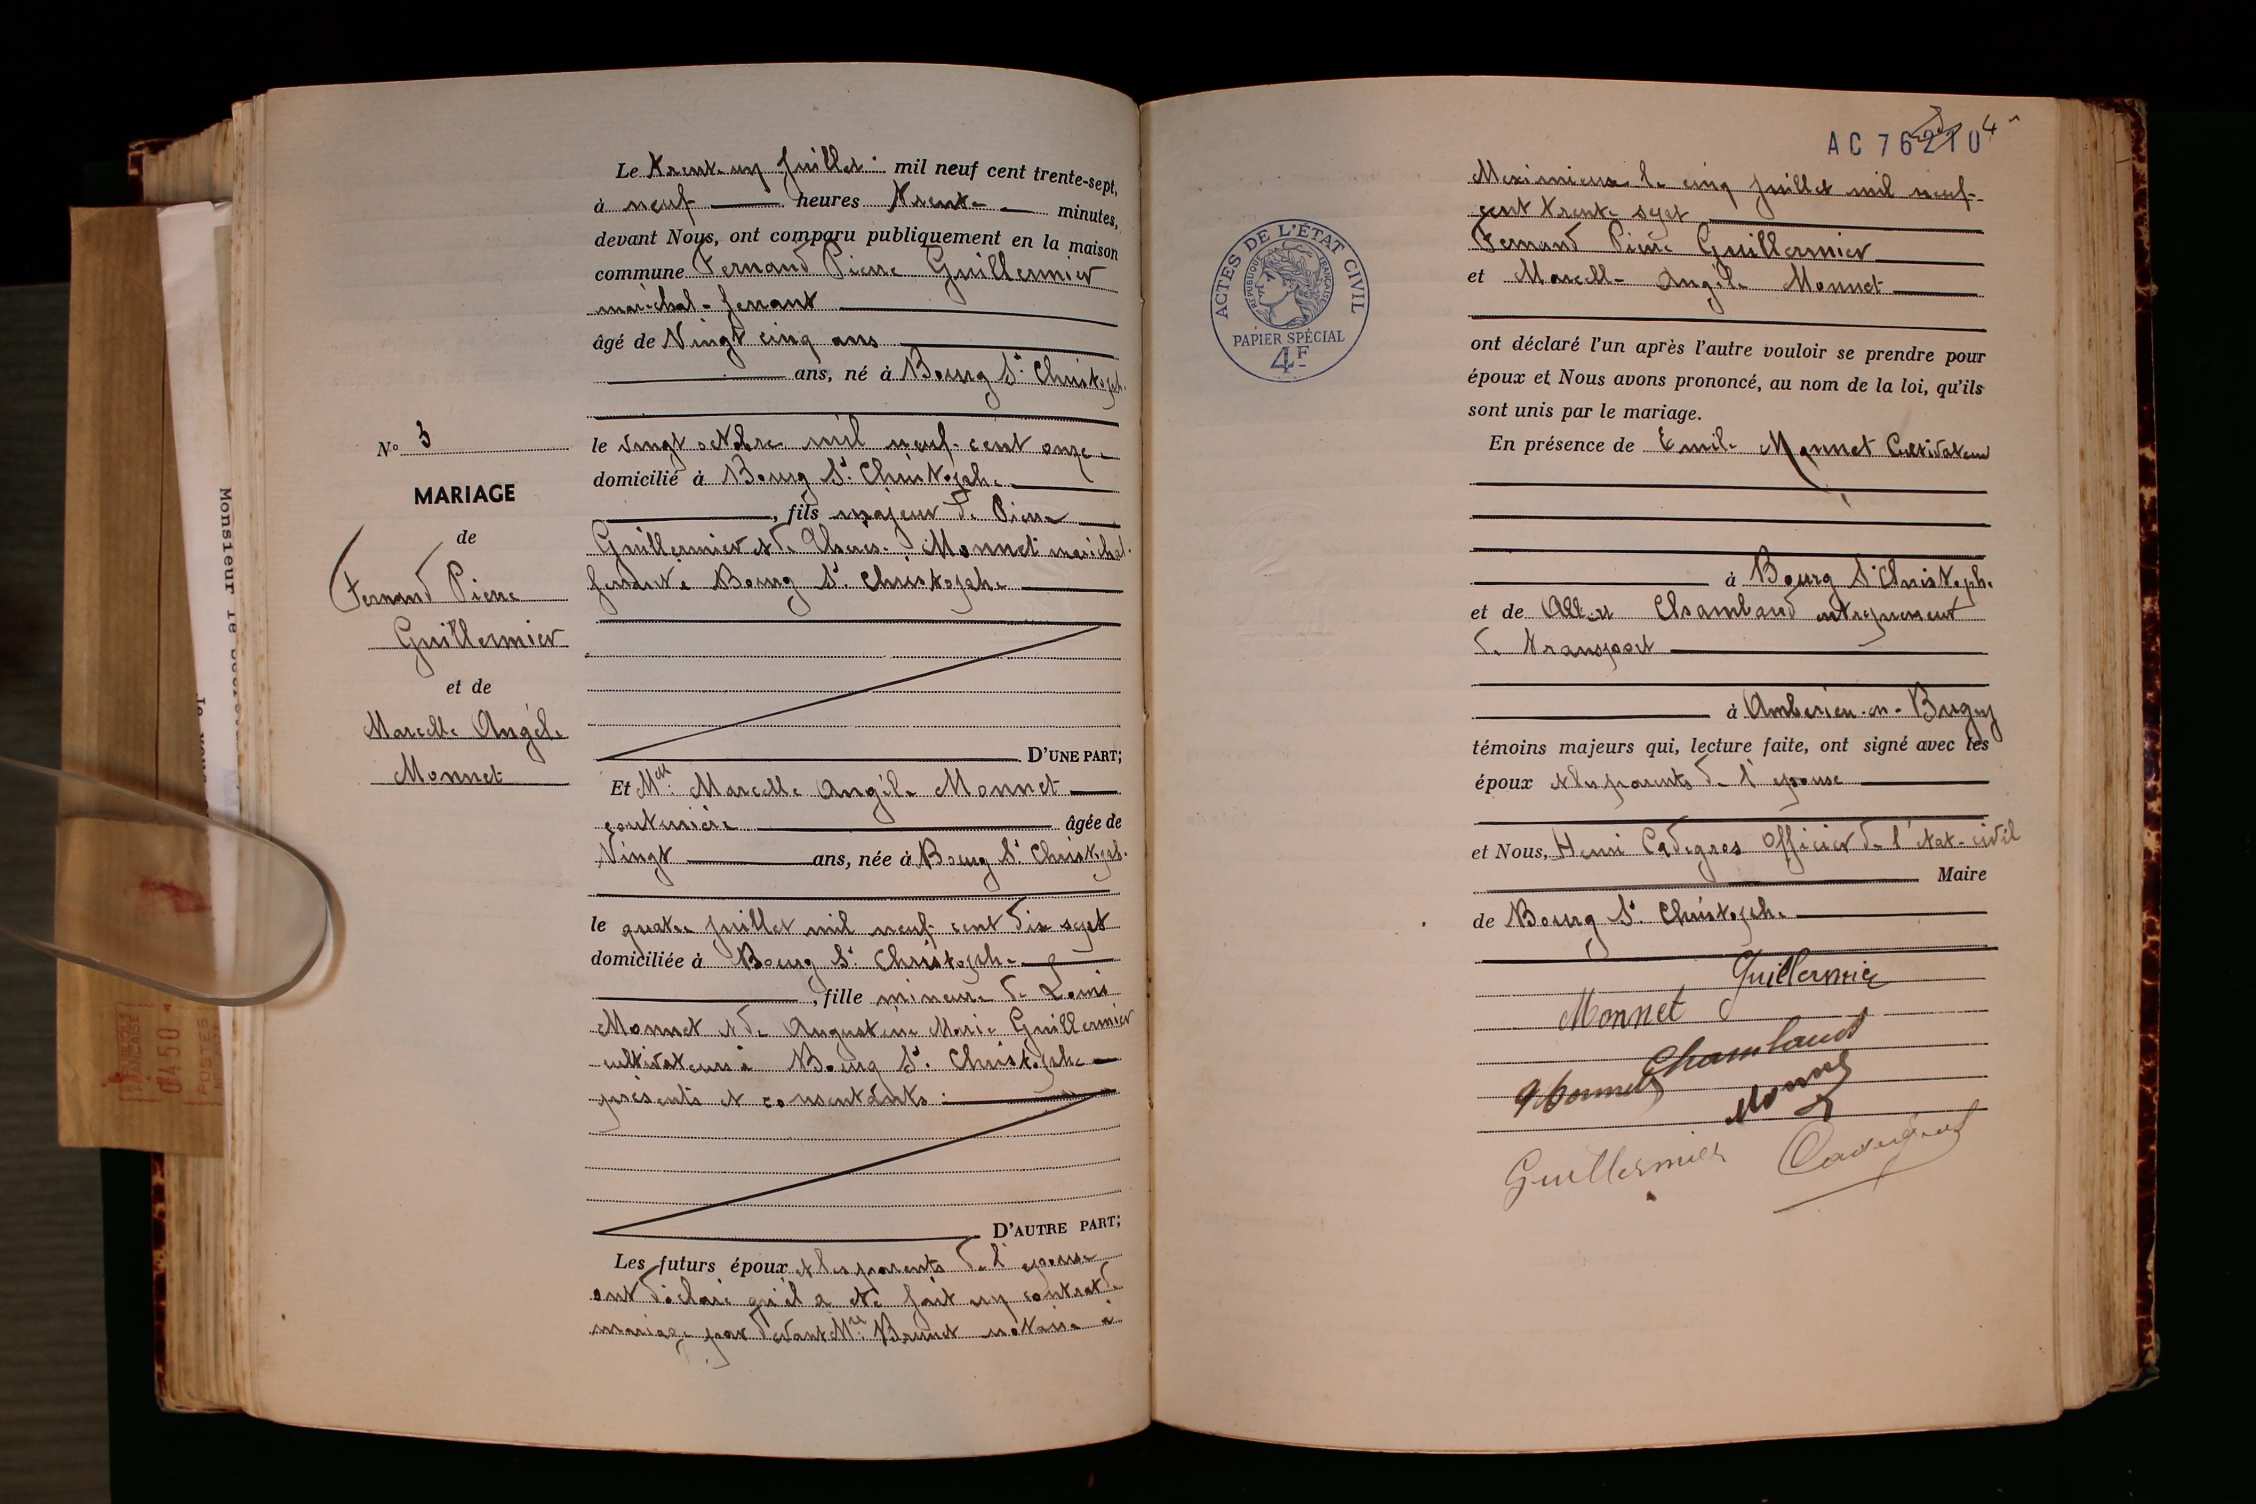 Le trente un Juillet mil neuf cent trente-sept,
à neuf heures trente minutes,
devant Nous, ont comparu publiquement en la maison
commune Fernand Pierre Guillermier
maréchal-ferrant
âgé de Vingt cinq ans
ans, né à Bourg St Christophe
N° 3
MARIAGE
de
Fernand Pierre
Guillermier
et de
Marcelle Angèle
Monnet
le vingt octobre mil neuf cent onze
domicilié à Bourg St Christophe
, fils majeur de Pierre
Guillermier et de Monnet maréchal
ferrant à Bourg St Christophe
D'UNE PART;
Et Melle Marcelle Angèle Monnet
couturière âgée de
Vingt ans, née à Bourg St Christophe
le quatre juillet mil neuf cent dix sept
domiciliée à Bourg St Christophe
, fille mineure de Louis
Monnet et de Augustine Marie Guillermier
cultivateurs à Bourg St Christophe
présents et consentants
D'AUTRE PART;
Les futurs époux et les parents de l'epouse
ont déclaré qu'il a été fait un contrat de
mariage par devant Me Brunet notaire à
AC 76210
4
Meximieux le cinq juillet mil neuf-
cent trente sept
Fernand Pierre Guillermier
et Marcelle Angèle Monnet
ACTES DE L'ÉTAT CIVIL
RÉPUBLIQUE FRANÇAISE
PAPIER SPÉCIAL
4F
ont déclaré l'un après l'autre vouloir se prendre pour
époux et Nous avons prononcé, au nom de la loi, qu'ils
sont unis par le mariage.
En présence de Emile Monnet Cultivateur
à Bourg St Christophe
et de Albert Chambaud entrepreneur
de transport
à Amberieu-en-Bugey
témoins majeurs qui, lecture faite, ont signé avec les
époux et les parents de l'epouse
et Nous, Henri Cadegros Officier de l'état-civil
Maire
de Bourg St Christophe
Guillermier
Monnet
Chambaud
Monnet
Monnet
Guillermier
Monsieur le